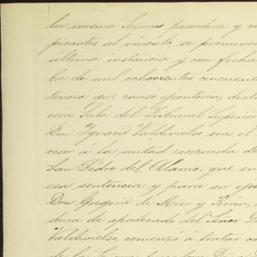 la misma
pirantes al vínculo, se pronunció
ultima instancia y con fecha
bre de mil ochocientos cincuenta
tencia que causó ejecutoria, decla
cera Sala del Tribunal Superior
Don Ignacio Valdivielso era el
cesor a la mitad reservada de
San Pedro del Alamo; que en
esa sentencia y para su eje
Don Gregorio de Mier y Terán,
dura de apoderado del Señor D
Valdivielso, comenzó a tratar co